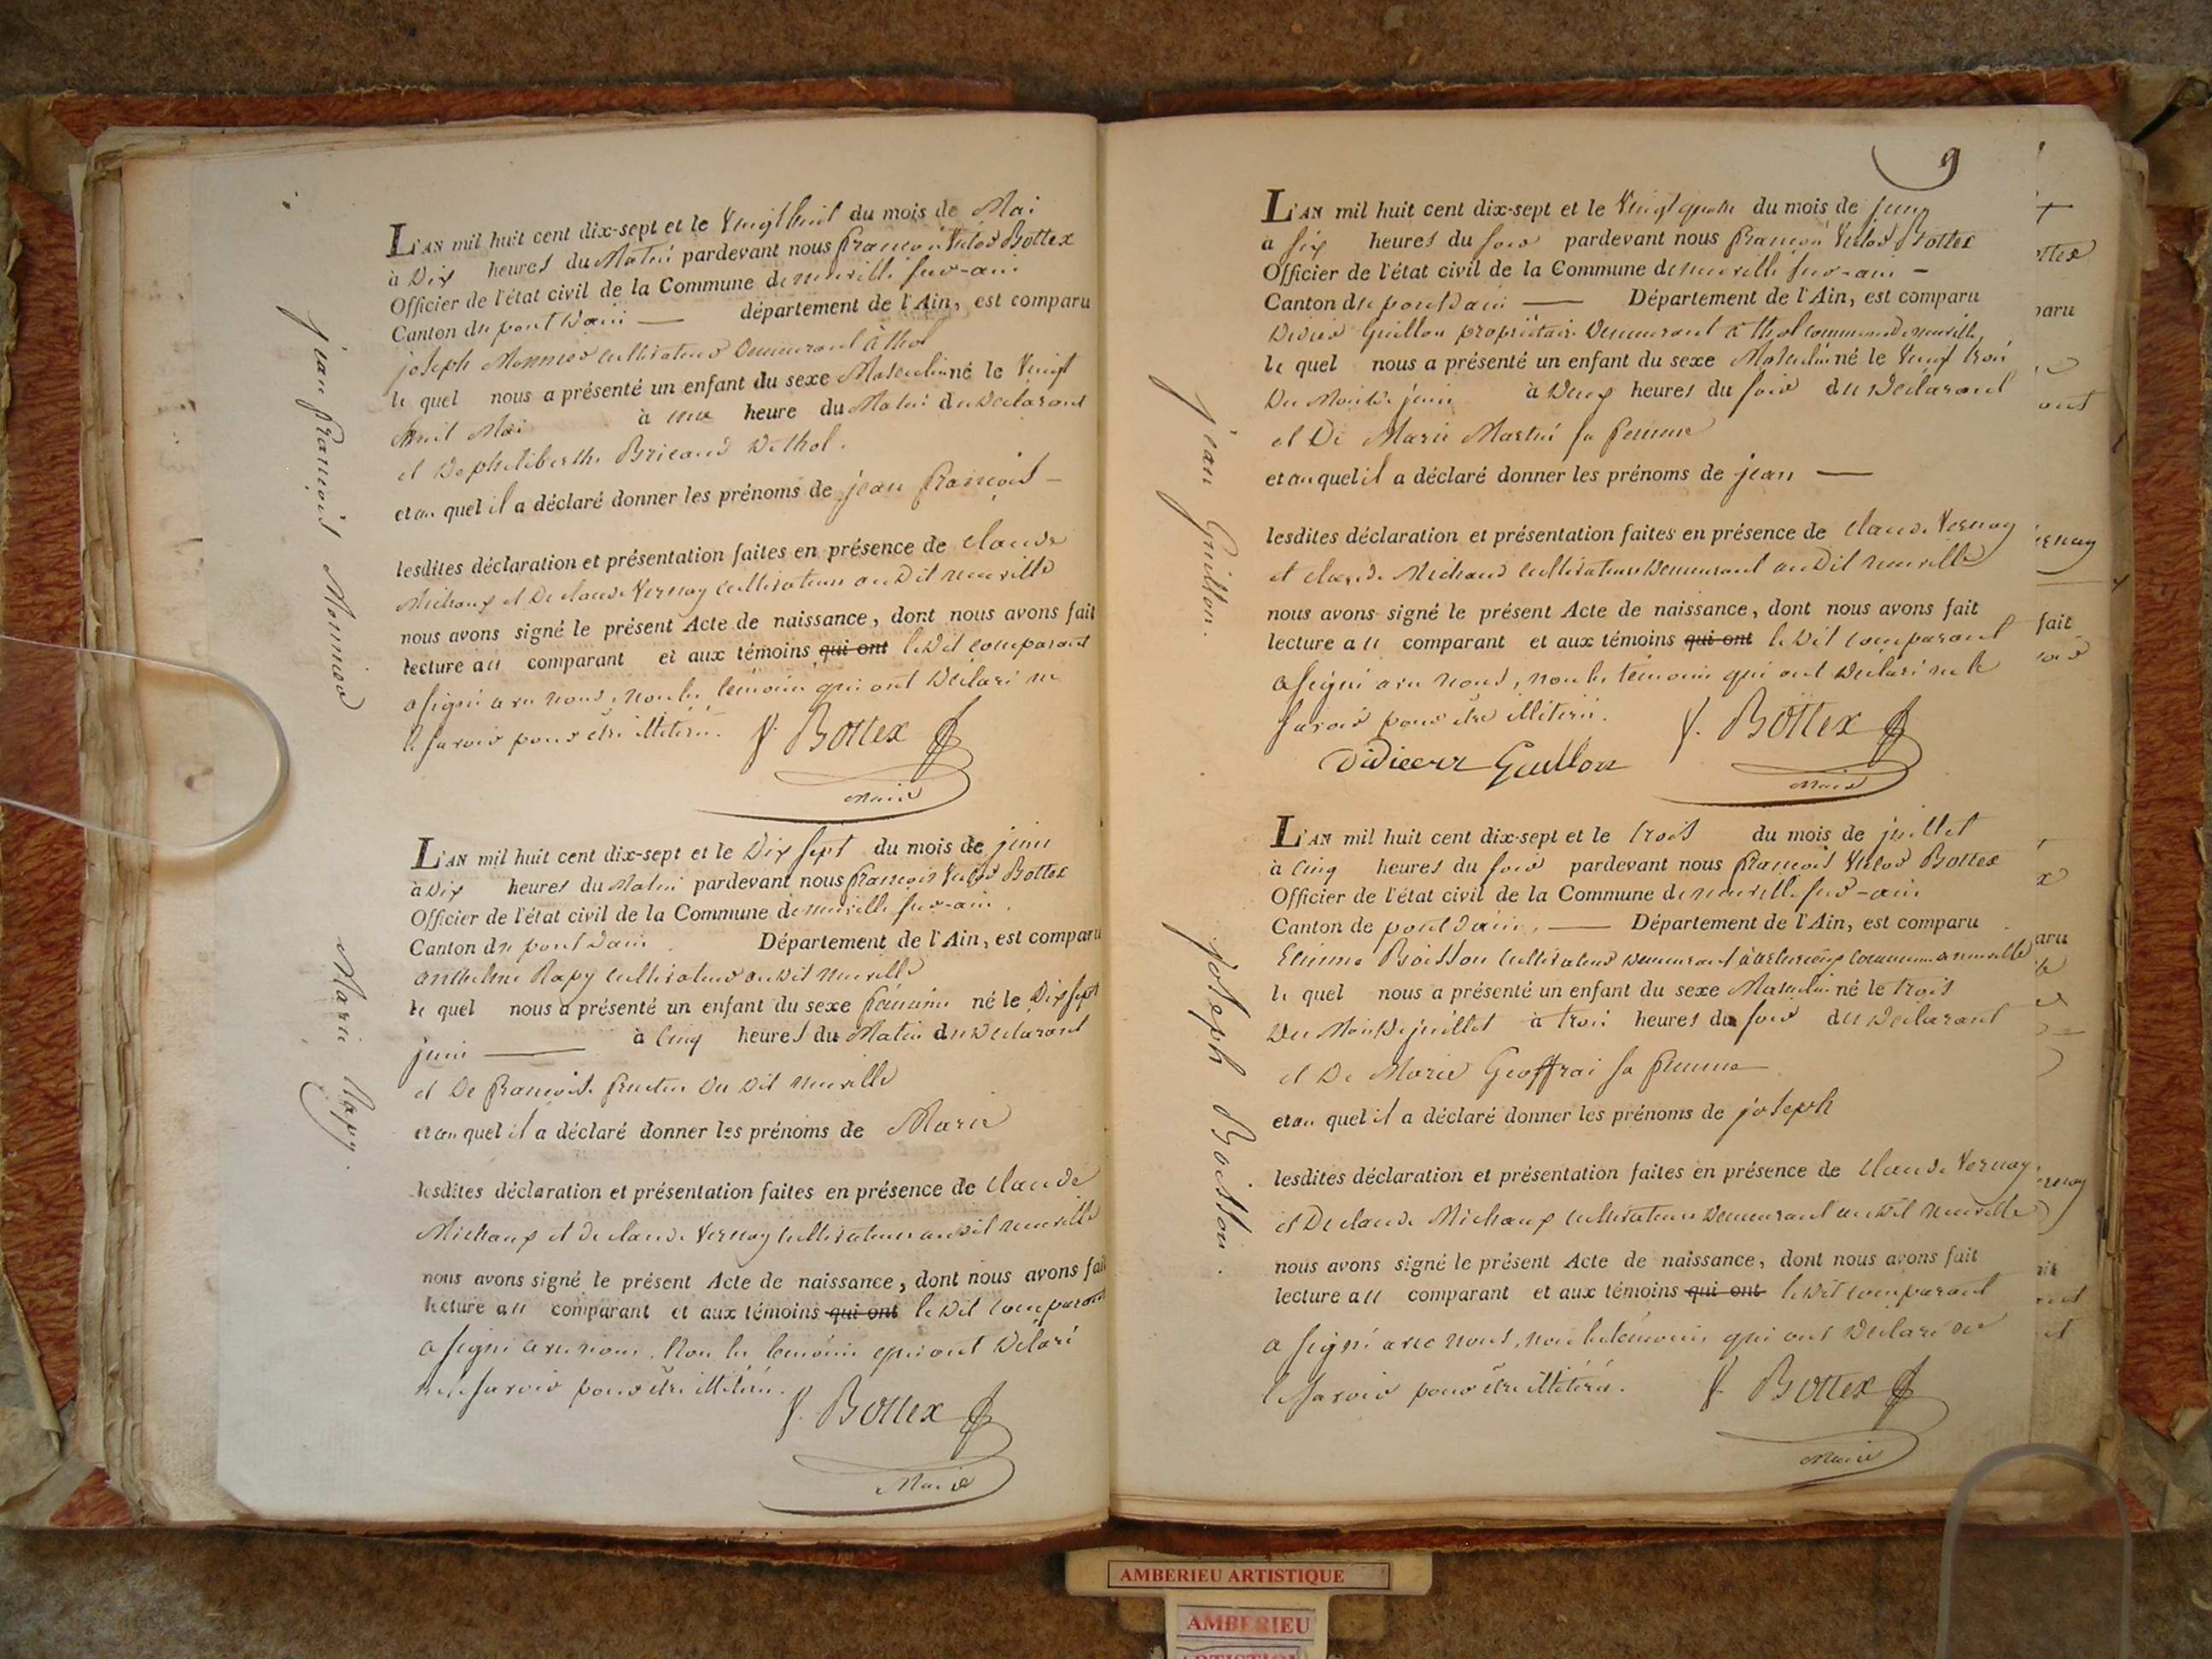 jean françois Monnier
L'AN mil huit cent dix-sept et le Vingt huit du mois de Mai
à Dix heures du Matin pardevant nous françois Victor Bottex
Officier de l'état civil de la Commune de neuville sur-ain
Canton du pont Dain — département de l'Ain, est comparu
joseph Monnier cultivateur Demeurant à thol
le quel nous a présenté un enfant du sexe Masculin né le Vingt
huit Mai à une heure du Matin du Declarant
et De philiberthe Bricaud De thol.
et au quel il a déclaré donner les prénoms de jean françois —
lesdites déclaration et présentation faites en présence de claude
Michaux et De claude Vernay cultivateurs au Dit neuville
nous avons signé le présent Acte de naissance, dont nous avons fait
lecture au comparant et aux témoins qui ont le Dit comparant
a signé avec nous, non les témoins qui ont Déclaré ne
le savoir pour être illitérés.
V. Bottex
Maire
Marie Rapy.
L'AN mil huit cent dix-sept et le Dix sept du mois de juin
à Dix heures du Matin pardevant nous françois Victor Bottex
Officier de l'état civil de la Commune de neuville sur-ain.
Canton du pont Dain Département de l'Ain, est comparu
anthelme Rapy cultivateur au Dit neuville
le quel nous a présenté un enfant du sexe féminin né le Dix sept
juin — à Cinq heures du Matin du Declarant
et De françoise au Dit neuville
et au quel il a déclaré donner les prénoms de Marie
lesdites déclaration et présentation faites en présence de claude
Michaux et de claude Vernay cultivateurs au dit neuville
nous avons signé le présent Acte de naissance, dont nous avons fait
lecture au comparant et aux témoins qui ont le Dit comparant
a signé avec nous. Non les témoins qui ont Délaré
ne le savoir pour être illitérés.
V. Bottex
Maire
9
jean Guillon.
L'AN mil huit cent dix-sept et le Vingt quatre du mois de juin
à six heures du soir pardevant nous françois Victor Bottex
Officier de l'état civil de la Commune de neuville sur-ain —
Canton du pont Dain — Département de l'Ain, est comparu
Didier Guillon propriétaire Demeurant à thol commune de neuville
le quel nous a présenté un enfant du sexe Masculin né le Vingt trois
Du Mois De juin à Deux heures du soir du Déclarant
et De Marie Martin sa femme
et au quel il a déclaré donner les prénoms de jean —
lesdites déclaration et présentation faites en présence de claude Vernay
et claude Michaud cultivateurs Demeurant au Dit neuville
nous avons signé le présent Acte de naissance, dont nous avons fait
lecture au comparant et aux témoins qui ont le Dit comparant
a signé avec nous, non les témoins qui ont Déclaré ne le
savoir pour être illitérés.
V. Bottex
Didier Guillon
Maire
joseph Boisson.
L'AN mil huit cent dix-sept et le trois du mois de juillet
à Cinq heures du soir pardevant nous françois Victor Bottex
Officier de l'état civil de la Commune de neuville sur-ain
Canton de pont Dain, — Département de l'Ain, est comparu
Etienne Boisson Cultivateur Demeurant commune neuville
le quel nous a présenté un enfant du sexe Masculin né le trois
Du Mois De juillet à trois heures du soir du Déclarant
et De Marie Geoffrai sa femme
et au quel il a déclaré donner les prénoms de joseph
lesdites déclaration et présentation faites en présence de claude Vernay
et De claude Michaux cultivateurs Demeurant au Dit neuville
nous avons signé le présent Acte de naissance, dont nous avons fait
lecture au comparant et aux témoins qui ont le Dit comparant
a signé avec nous, non les témoins qui ont Declaré ne
le savoir pour être illitérés.
V. Bottex
Maire
AMBERIEU ARTISTIQUE
AMBERIEU
ARTISTIQUE